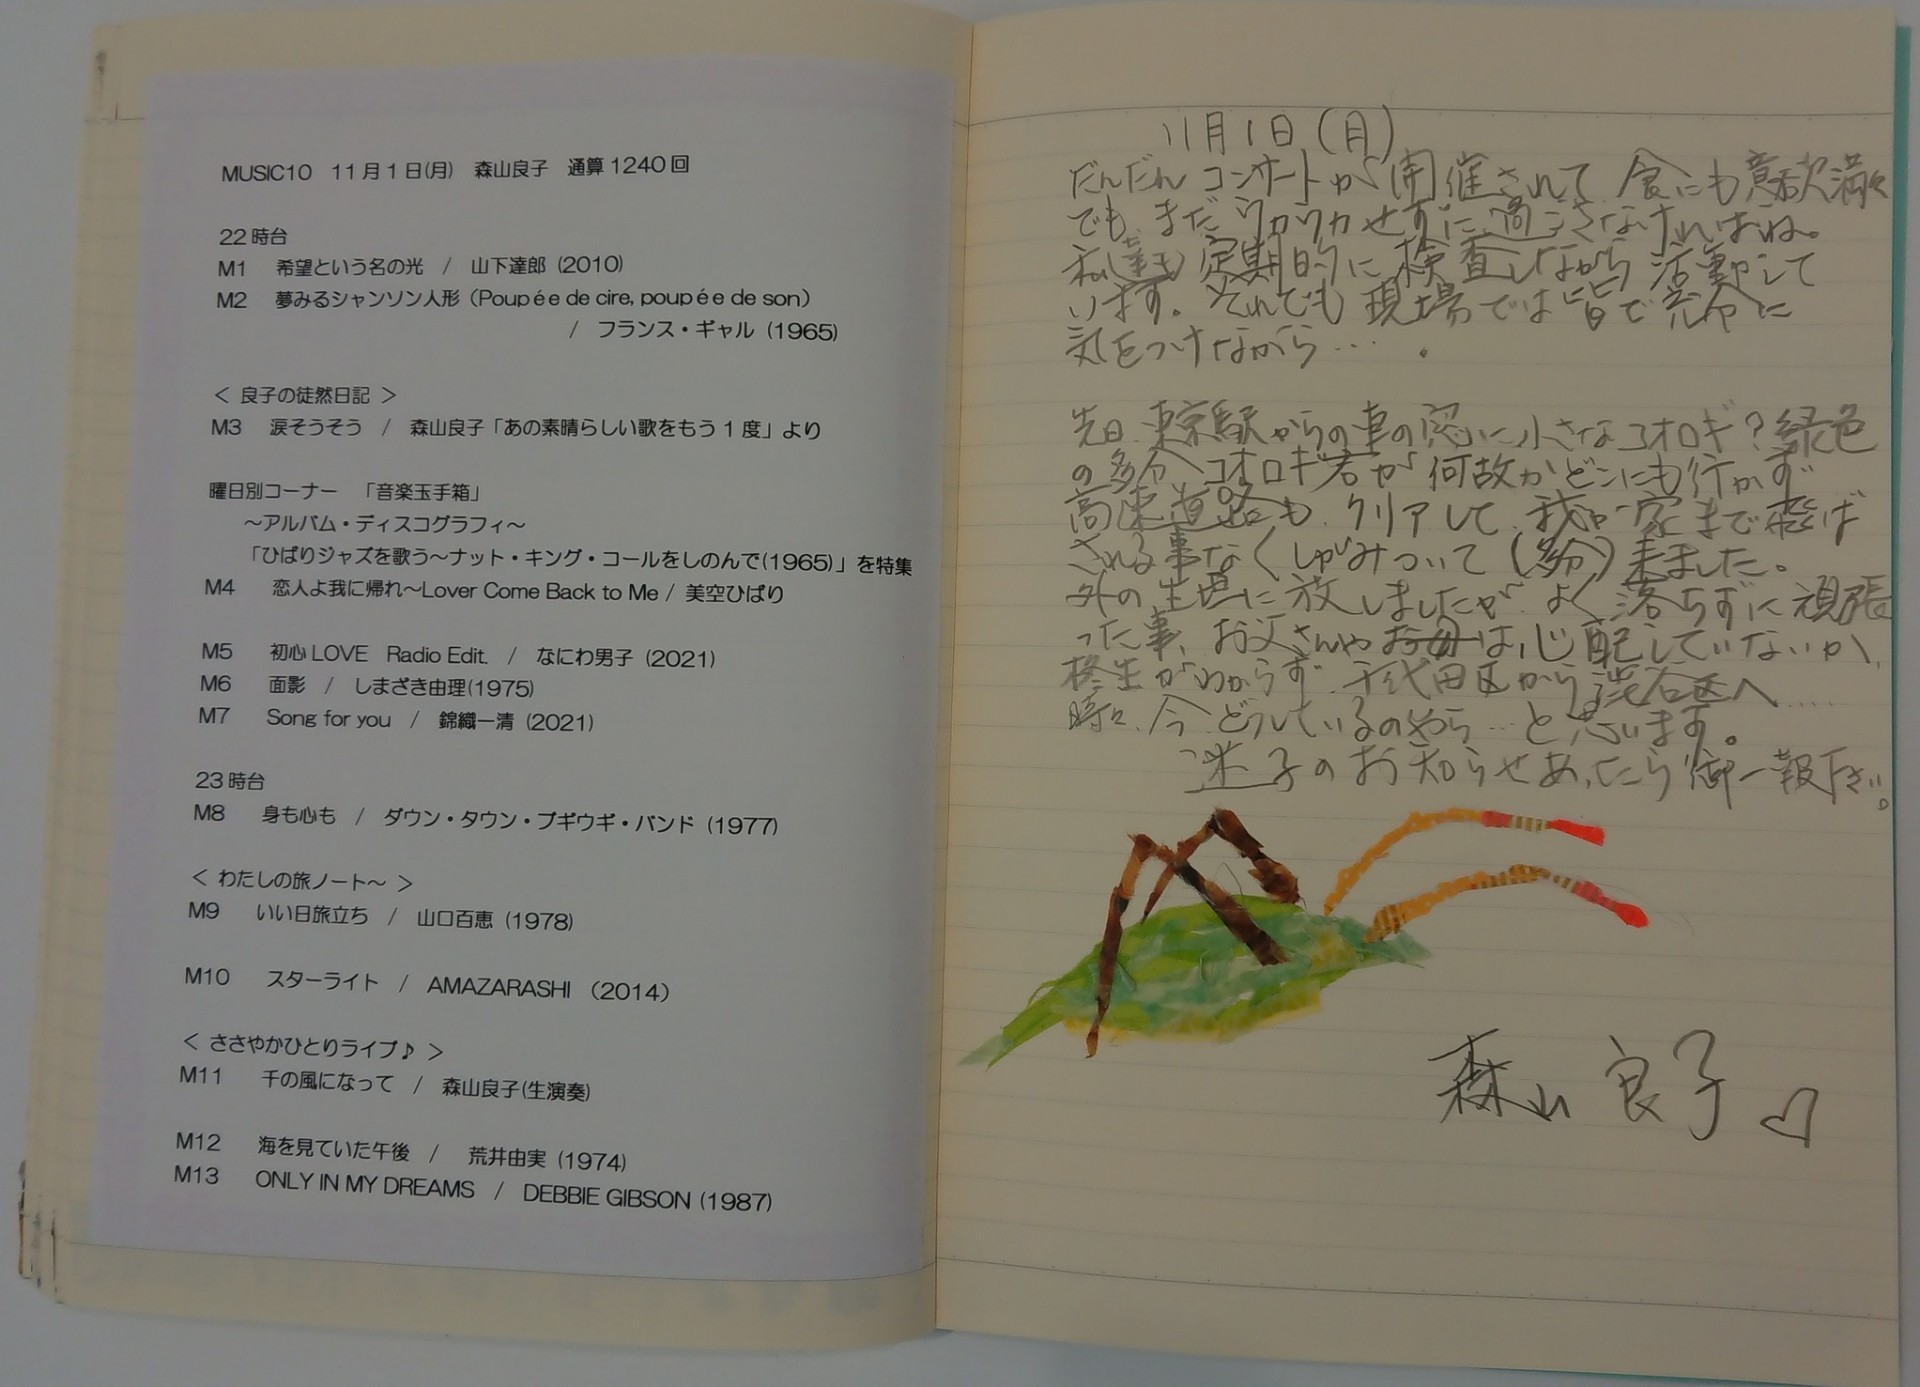 MUSIC10 11月1日(月) 森山良子 通算1240回
22時台
M1 希望という名の光 / 山下達郎 (2010)
M2 夢みるシャンソン人形 (Poupée de cire, poupée de son)
/ フランス・ギャル (1965)
< 良子の徒然日記 >
M3 涙そうそう / 森山良子「あの素晴らしい歌をもう1度」より
曜日別コーナー 「音楽玉手箱」
～アルバム・ディスコグラフィ～
「ひばりジャズを歌う～ナット・キング・コールをしのんで(1965)」を特集
M4 恋人よ我に帰れ～Lover Come Back to Me / 美空ひばり
M5 初心LOVE Radio Edit. / なにわ男子 (2021)
M6 面影 / しまざき由理(1975)
M7 Song for you / 錦織一清 (2021)
23時台
M8 身も心も / ダウン・タウン・ブギウギ・バンド (1977)
< わたしの旅ノート～ >
M9 いい日旅立ち / 山口百恵 (1978)
M10 スターライト / AMAZARASHI (2014)
< ささやかひとりライブ♪ >
M11 千の風になって / 森山良子(生演奏)
M12 海を見ていた午後 / 荒井由実 (1974)
M13 ONLY IN MY DREAMS / DEBBIE GIBSON (1987)
11月1日(月)
だんだんコンサートが開催されて 食にも意欲満々
でも、まだうかうかせずに過ごさなければね。
私達も定期的に検査しながら活動して
います。それでも現場では皆で充分に
気をつけながら….
先日、東京駅からの車の窓に小さなコオロギ?緑色
の多分コオロギ君が何故かどこにも行かず
高速道路も クリアして、我が家まで飛ば
される事なくしがみついて(多分)来ました。
外の生垣に放しましたが よく落ちずに頑張
った事、お父さんやお母は心配していないか、
行かず 千代田区から渋谷区へ….
時々、今、どうしているのやら…と思います。
迷子のお知らせあったら御一報下さい。
森山良子♡